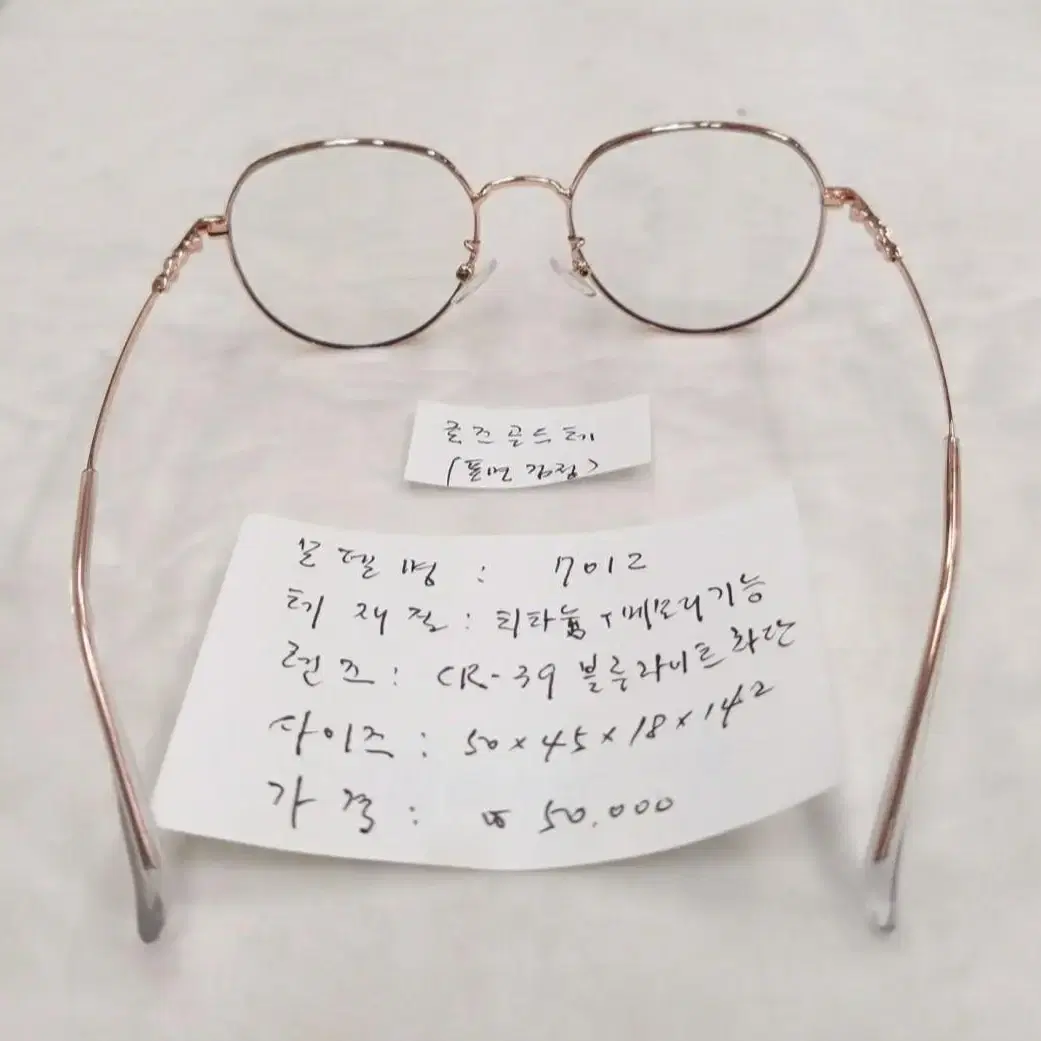 로즈골드테
(표면 검정)
모델명 : 7012
테 재질 : 티타늄 + 메모리기능
렌즈 : CR-39 블루라이트 차단
사이즈 : 50×45×18×142
가격 : ₩50.000